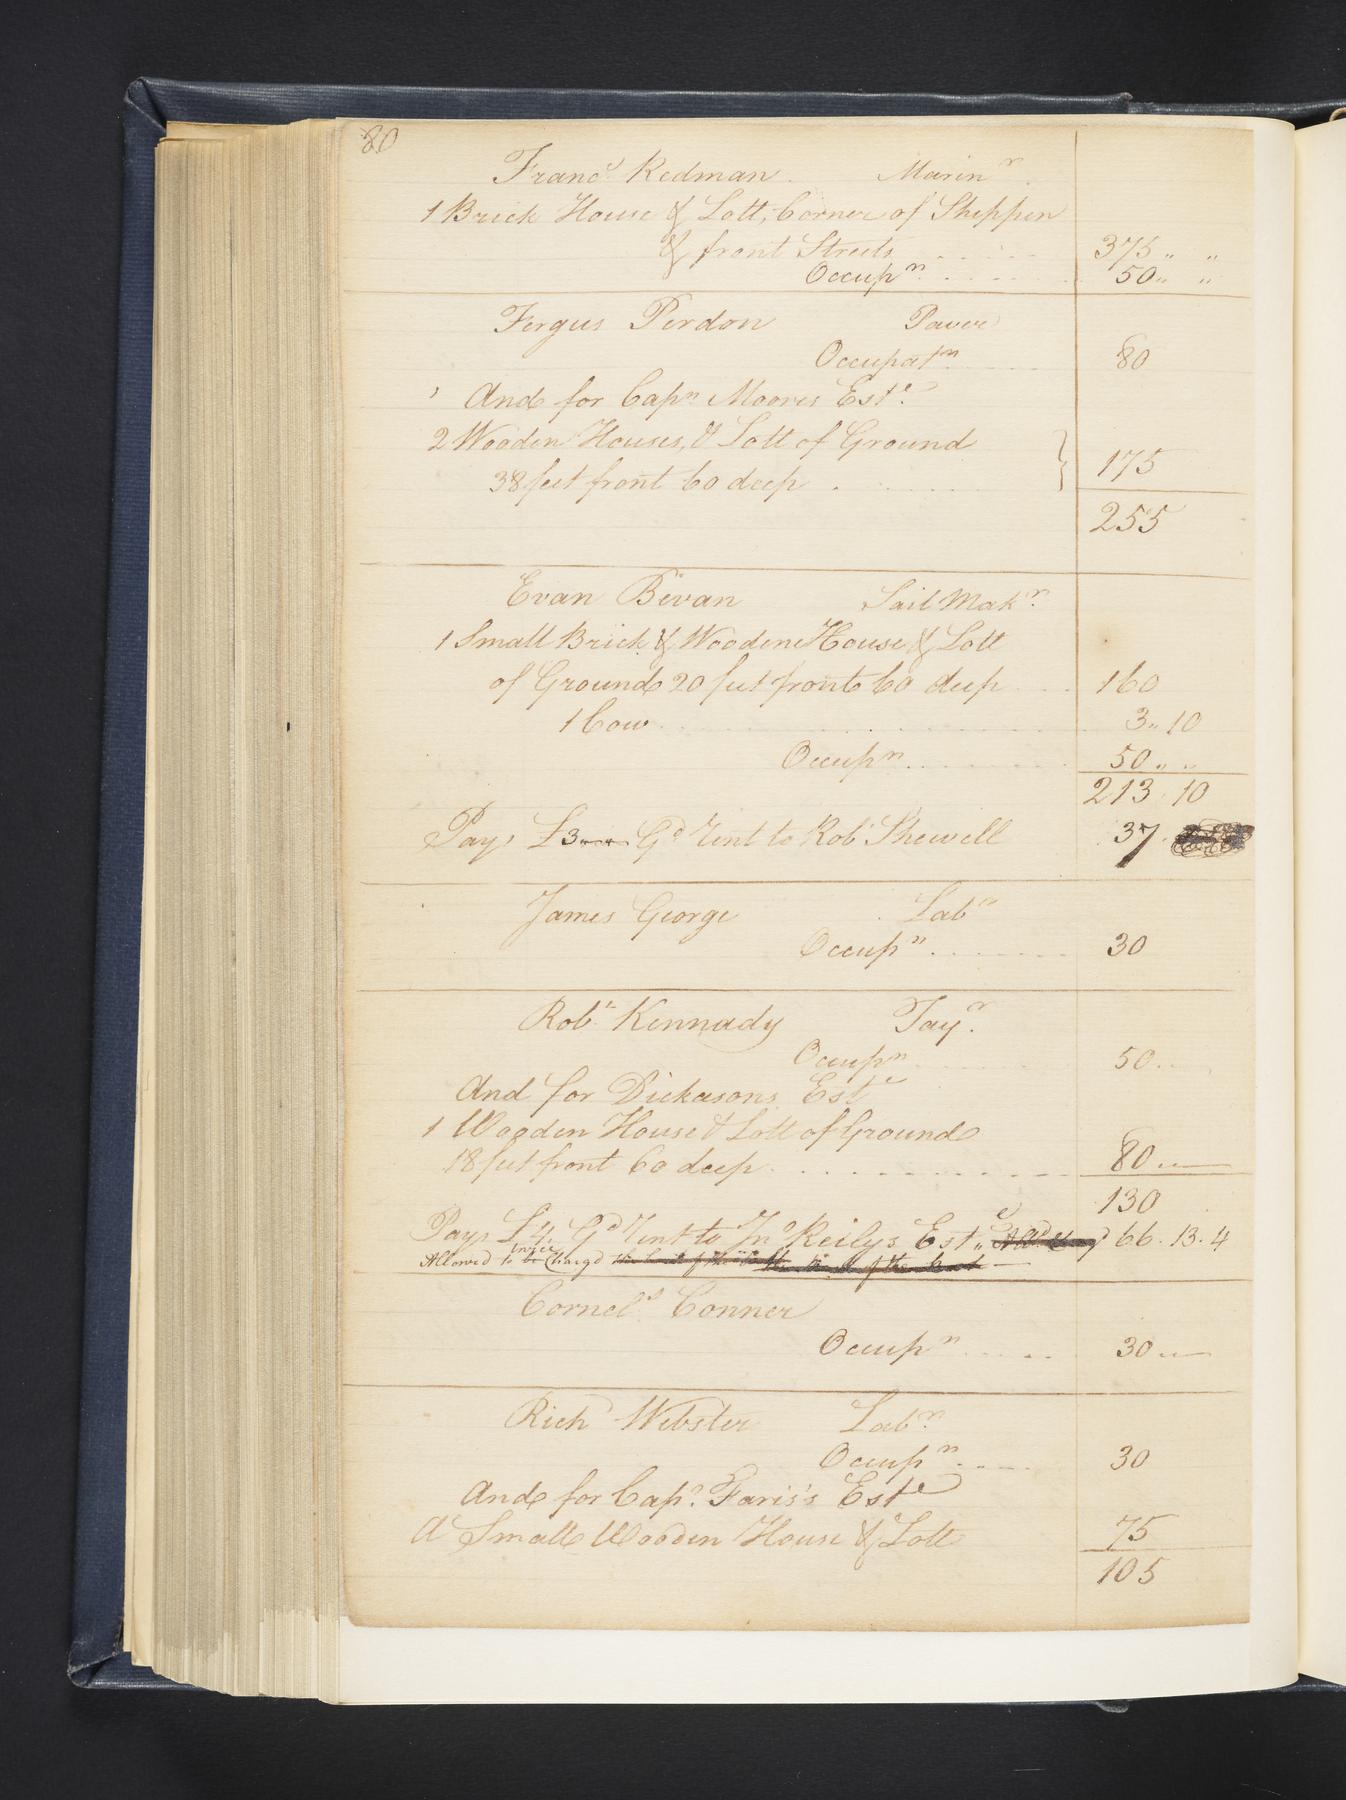 80
Franc.s Redman. Marin.r
1 Brick House & Lott, Corner of Shippen
& front Streets 375 " "
Occup.n 50 " "
Fergus Perdon Paver
Occupat.n 80
And for Cap.n Moores Est.e
2 Wooden Houses, & Lott of Ground
38 feet front 60 deep } 175
255
Evan Bevan Sail Mak.r
1 Small Brick & Wooden House & Lott
of Ground 20 feet front 60 deep 160
1 Cow 3 " 10
Occup.n 50 " "
213 . 10
Pays £3 " " " G.d Rent to Rob.t Shewell 37
James George Lab.r
Occup.n 30
Rob.t Kennady Tay.r
Occup.n 50
And for Dickasons Est.e
1 Wooden House & Lott of Ground
18 feet front 60 deep 80
130
Pays £4 G.d Rent to Jn.o Reilys Est.e 66 . 13 . 4
Allowed to be twice Charg'd
Cornel.s Conner
Occup.n 30
Rich.d Webster Lab.r
Occup.n 30
And for Cap.n Faris's Est.e
A Small Wooden House & Lott 75
105